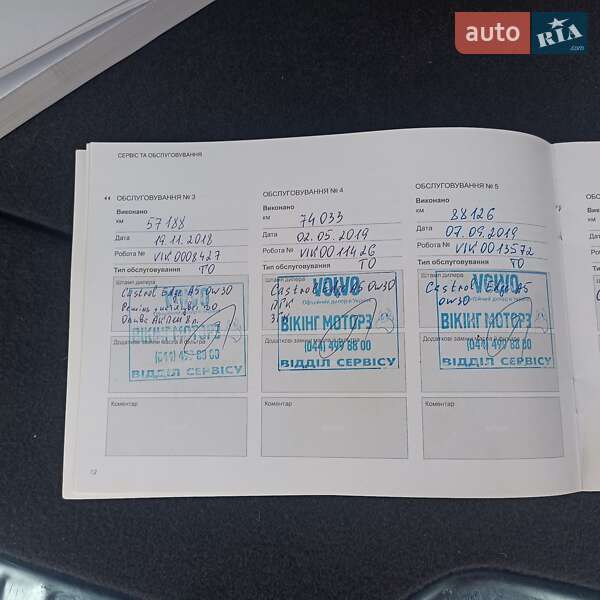 auto RIA.com
СЕРВІС ТА ОБСЛУГОВУВАННЯ
ОБСЛУГОВУВАННЯ № 3
Виконано
км 57188
Дата 19.11.2018
Робота № VIK0008427
Тип обслуговування ТО
Штамп дилера
Castrol Edge A5 0w30
VOLVO
ВІКІНГ МОТОРЗ
Додаткові
(044) 499 88 00
ВІДДІЛ СЕРВІСУ
Коментар
ОБСЛУГОВУВАННЯ № 4
Виконано
км 74033
Дата 02.05.2019
Робота № VIK0011426
Тип обслуговування ТО
Штамп дилера
Castrol Edge A5 0w30
VOLVO
Офіційний дилер в Україні
ВІКІНГ МОТОРЗ
Додаткові
(044) 499 88 00
ВІДДІЛ СЕРВІСУ
Коментар
ОБСЛУГОВУВАННЯ № 5
Виконано
км 88126
Дата 07.09.2019
Робота № VIK0013572
Тип обслуговування ТО
Штамп дилера
Castrol Edge A5
0w30
VOLVO
ВІКІНГ МОТОРЗ
Додаткові
(044) 499 88 00
ВІДДІЛ СЕРВІСУ
Коментар
12